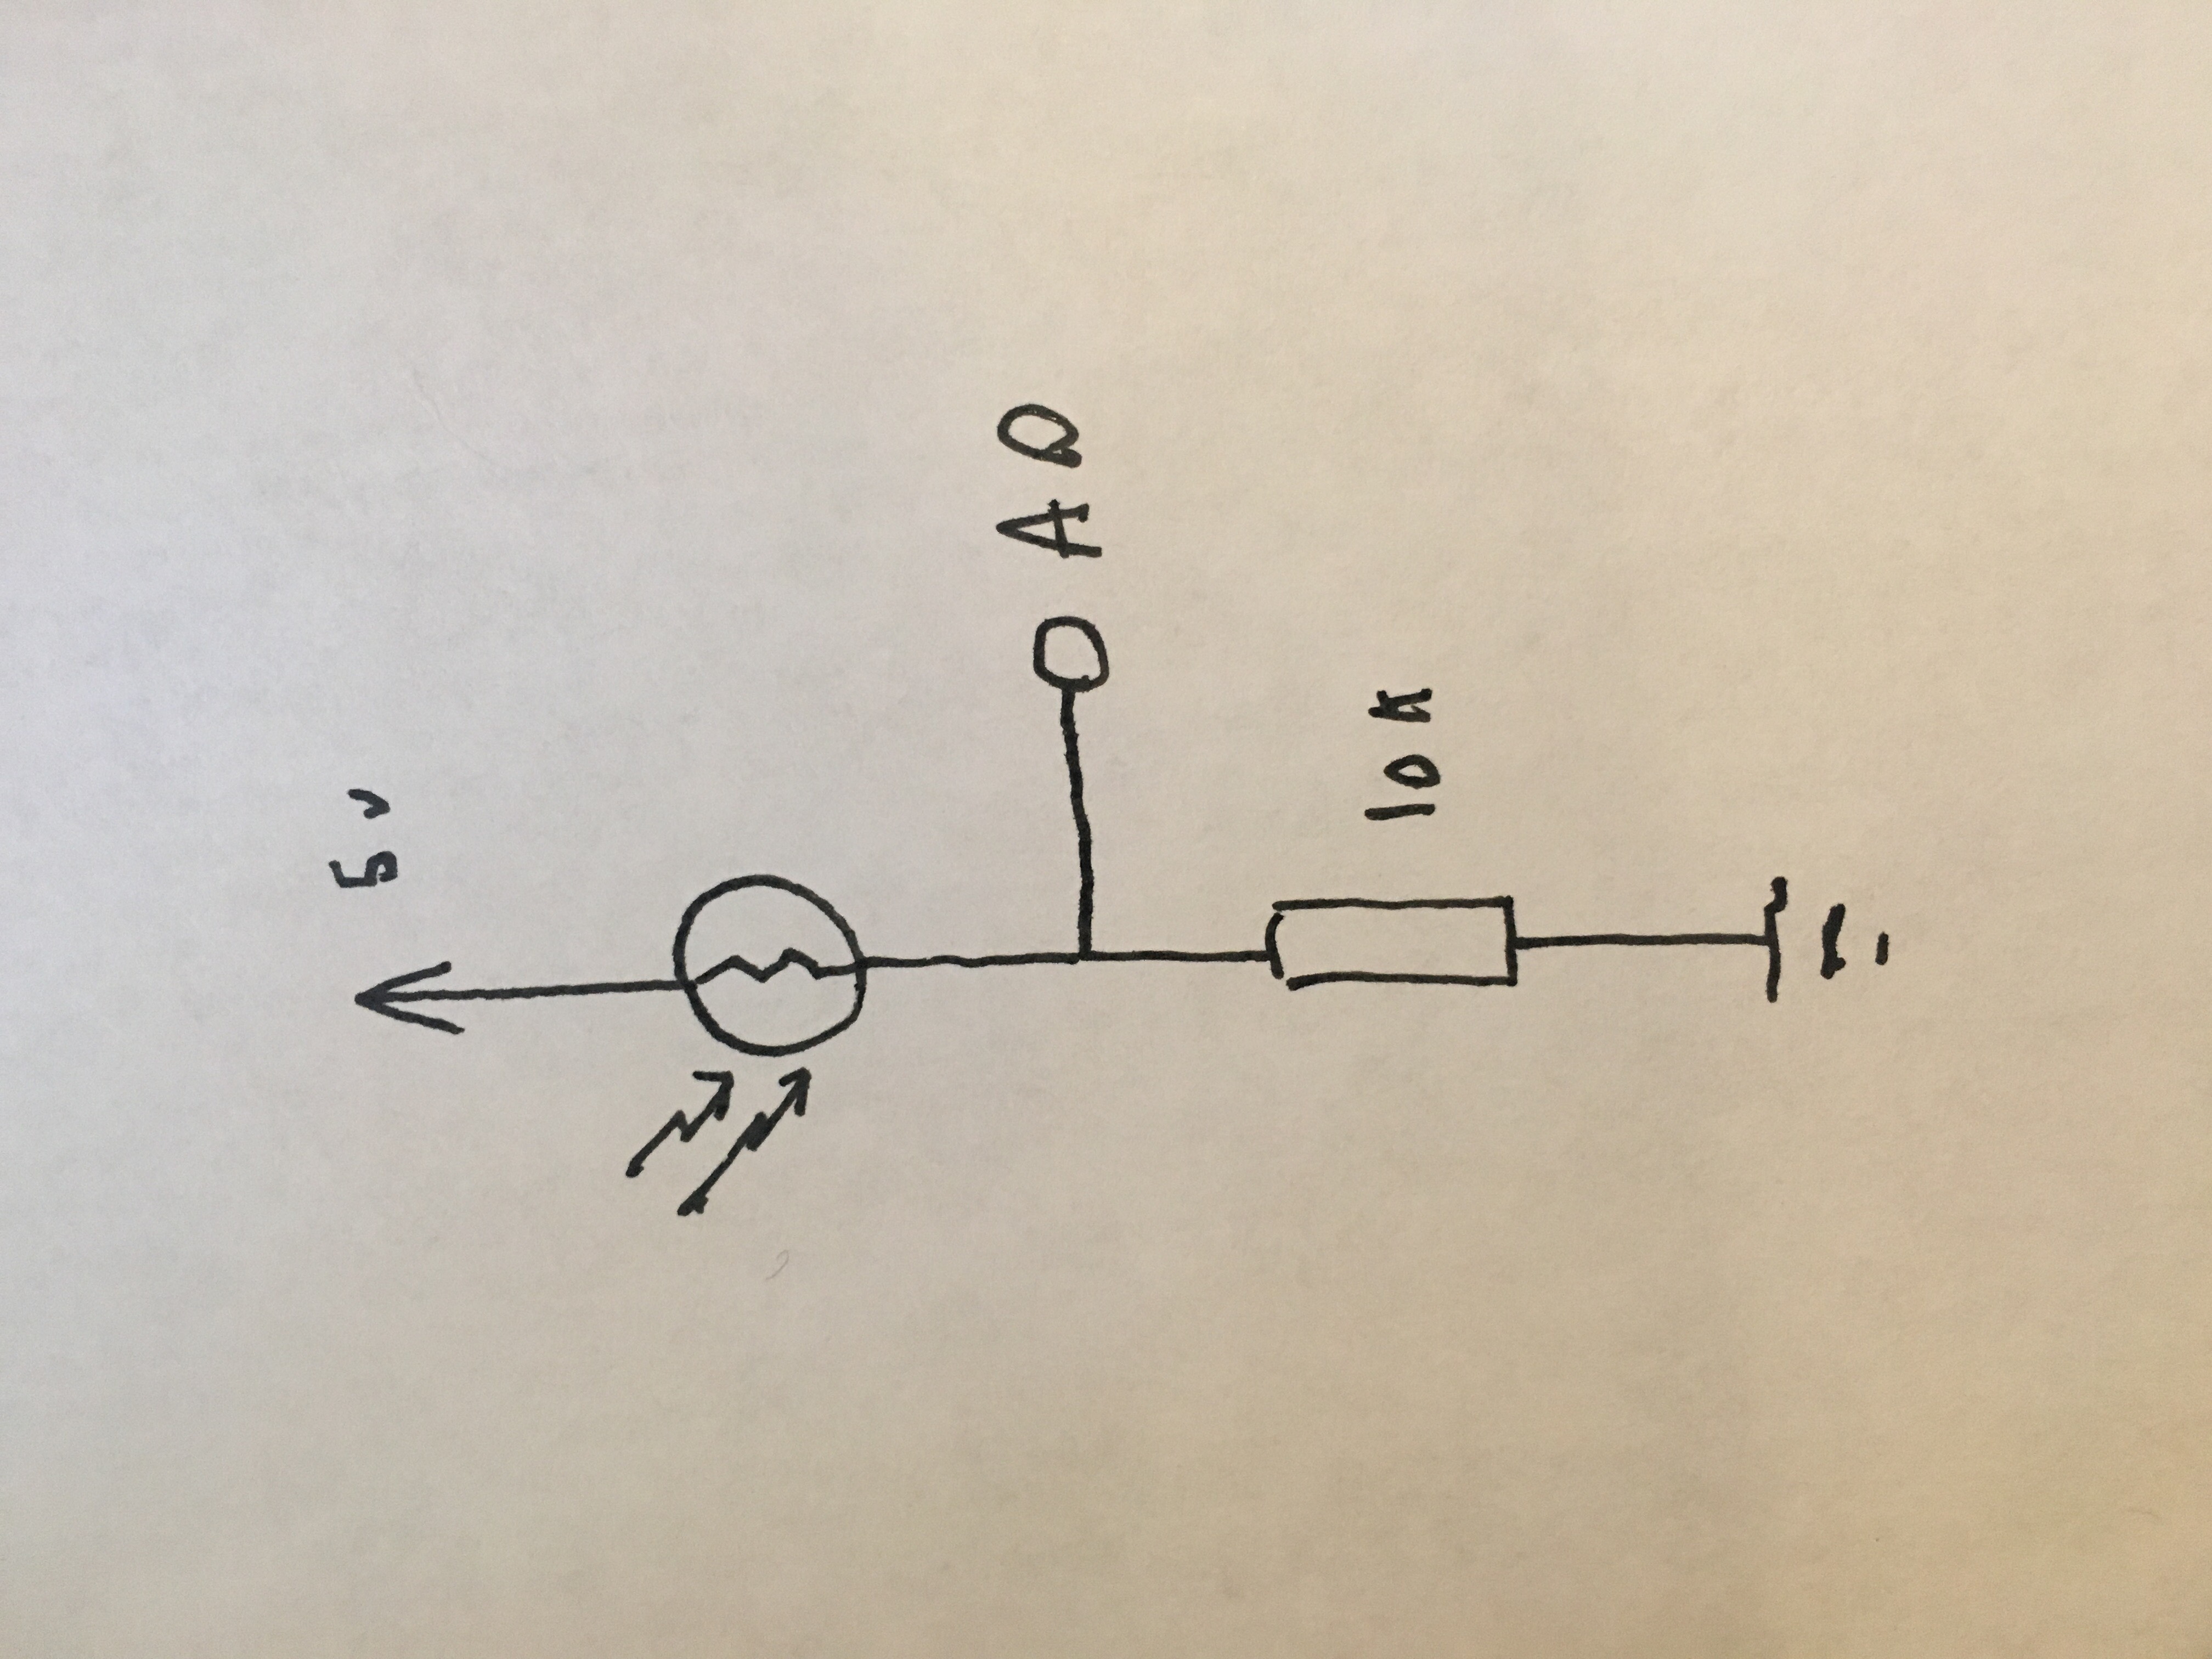 5v
A0
10k